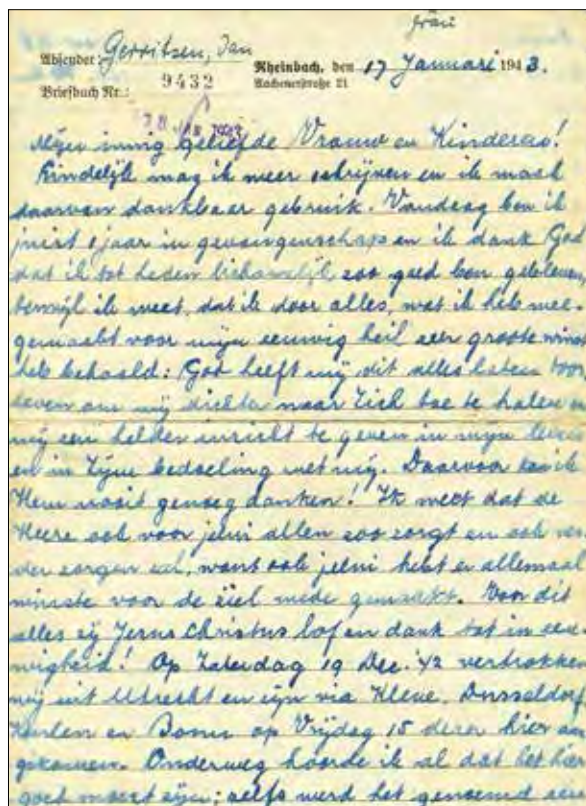 frau
Absender: Gerritsen, Jan
Rheinbach, den 17 Januari 1943.
Briefbuch Nr.: 9432
Aachenerstraße 21
Mijn innig geliefde Vrouw en Kinderen!
Eindelijk mag ik weer schrijven en ik maak
daarvan dankbaar gebruik. Vandaag ben ik
juist 1 jaar in gevangenschap en ik dank God
dat ik tot heden lichamelijk zoo goed ben gebleven
terwijl ik weet, dat ik door alles, wat ik heb mee-
gemaakt voor mijn eeuwig heil zeer groote winst
heb behaald: God heeft mij dit alles laten door
leven om mij dichter naar Zich toe te halen en
mij een helder inzicht te geven in mijn leven
en in Zijne bedoeling met mij. Daarvoor kan ik
Hem nooit genoeg danken! Ik weet dat de
Heere ook voor jelui allen zoo zorgt en ook ver
der zorgen zal, want ook jelui hebt er allemaal
winste voor de ziel mede gemaakt. Voor dit
alles zij Jezus Christus lof en dank tot in eeu-
wigheid! Op Zaterdag 19 Dec. '42 vertrokken
wij uit Utrecht en zijn via Kleve, Dusseldorf,
Keulen en Bonn op Vrijdag 15 dezer hier aan
gekomen. Onderweg hoorde ik al dat het hier
goed moest zijn; zelfs werd het genoemd een